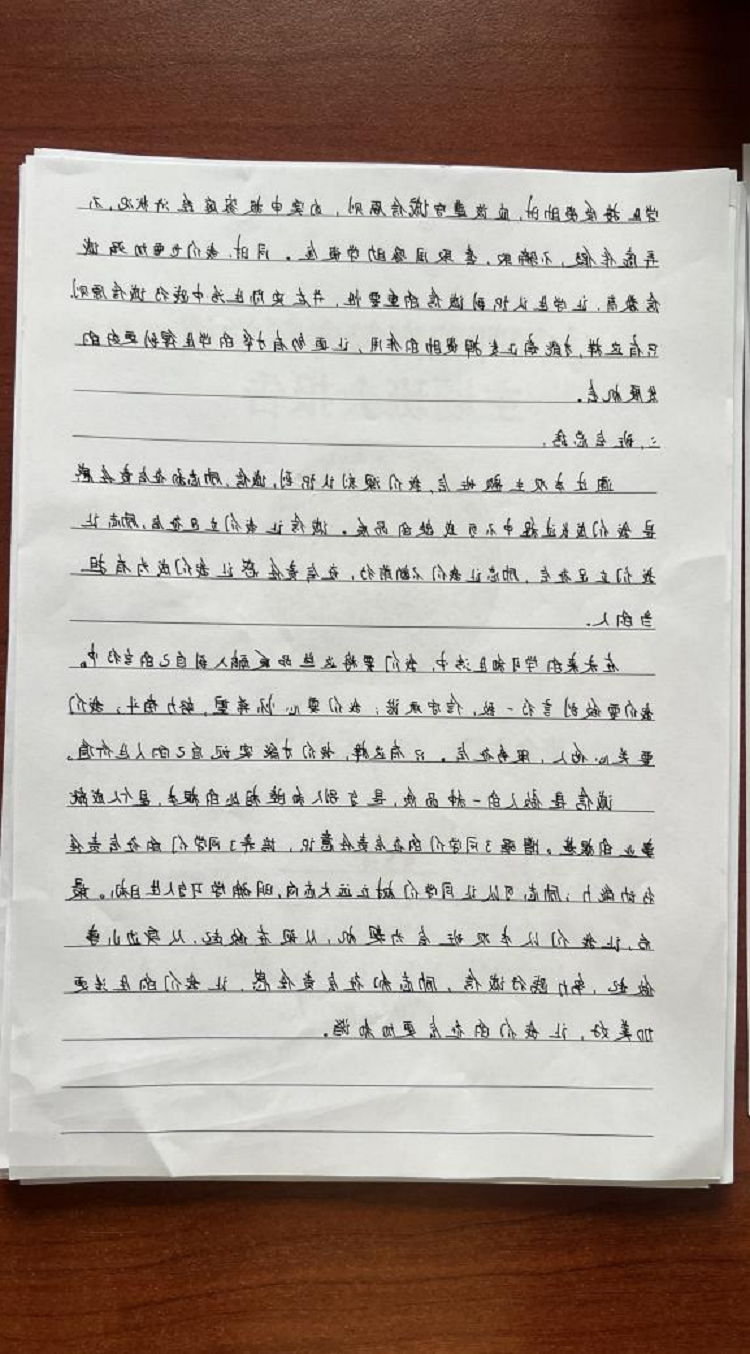 学生接受资助时，应该遵守诚信原则，如实申报家庭经济状况，不
弄虚作假、不骗取、套取国家助学资金。同时，我们也要加强诚
信教育，让学生认识到诚信的重要性，并在实际生活中践行诚信原则。
只有这样，才能真正发挥资助的作用，让更多有才华的学生得到更好的
发展机会。
三、班会总结。
通过本次主题班会，我们深刻认识到，诚信、励志和社会责任感
是我们成长过程中不可或缺的品质。诚信让我们立足社会，励志让
我们立足社会，励志让我们不断前行，社会责任感让我们成为有担
当的人。
在未来的学习和生活中，我们要将这些品质融入到自己的言行中。
我们要做到言行一致，信守承诺；我们要心怀希望，努力奋斗；我们
要关心他人，服务社会。只有这样，我们才能实现自己的人生价值。
诚信是做人的一种品质，是与别人和睦相处的根本，是个人成就
事业的根基。增强了同学们的社会责任意识，培养了同学们的社会责任
与功能力；励志可以让同学们树立远大志向，明确学习与人生目标。最
后，让我们以本次班会为契机，从现在做起，从身边小事
做起，争力践行诚信、励志和社会责任感，让我们的生活更
加美好，让我们的社会更加和谐。